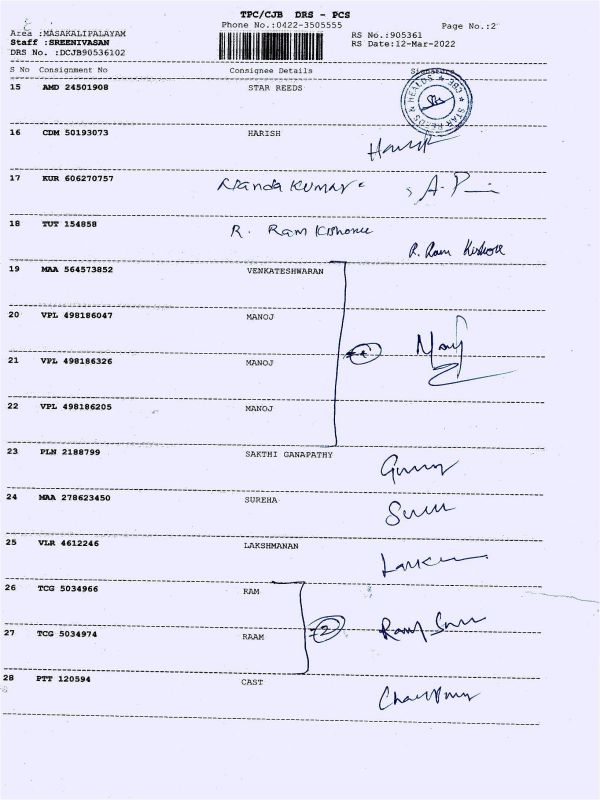 TPC/CJB DRS - PCS
Phone No.:0422-3505555 Page No.:2
Area :MASAKALIPALAYAM RS No.:905361
Staff :SREENIVASAN RS Date:12-Mar-2022
DRS No. :DCJB90536102
S No Consignment No Consignee Details Signature
15 AMD 24501908 STAR REEDS
STAR REEDS & HEALDS CBE
16 CDM 50193073 HARISH
17 KUR 606270757 Nanda Kumar
18 TUT 154858 R. Ram Kishore
R. Ram Kishore
19 MAA 564573852 VENKATESHWARAN
20 VPL 498186047 MANOJ
21 VPL 498186326 MANOJ
22 VPL 498186205 MANOJ
23 PLN 2188799 SAKTHI GANAPATHY
24 MAA 278623450 SUREHA
25 VLR 4612246 LAKSHMANAN
26 TCG 5034966 RAM
2
27 TCG 5034974 RAAM
28 PTT 120594 CAST